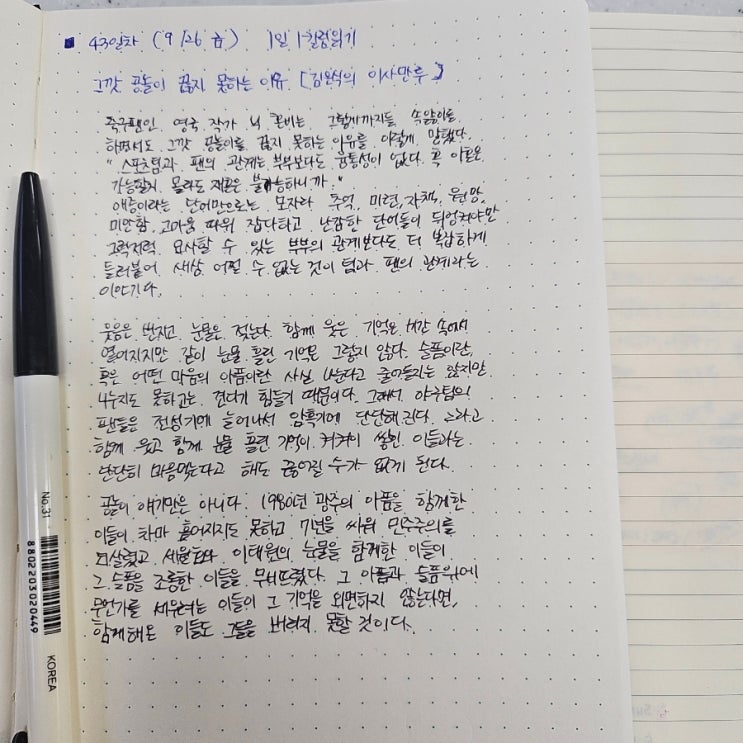 43일차 (9/26 금) 1일 1칼럼읽기
그깟 공놀이 끊지 못하는 이유 [김은식의 이사만루]
축구팬인 영국 작가 닉 혼비는 그렇게까지들 속앓이를
하면서도 그깟 공놀이를 끊지 못하는 이유를 이렇게 말했다.
"스포츠팀과 팬의 관계는 부부보다도 융통성이 없다. 혹 이혼은
가능할지 몰라도 재혼은 불가능하니까."
애증이라는 단어만으로는 모자라 추억, 미련, 자책, 원망,
미안함, 고마움 따위 잡다하고 난감한 단어들이 뒤엉켜야만
그럭저럭 묘사할 수 있는 부부의 관계보다도 더 복잡하게
들러붙어 생살 어쩔 수 없는 것이 팀과 팬의 관계라는
이야기다.
웃음은 번지고 눈물은 젖는다. 함께 웃은 기억은 시간 속에서
옅어지지만 같이 눈물 흘린 기억은 그렇지 않다. 슬픔이란,
혹은 어떤 마음의 아픔이란 사실 나눈다고 줄어들지는 않지만
나누지도 못하고는 견디기 힘들기 때문이다. 그래서 야구팀의
팬들은 전성기에 늘어나서 암흑기에 단단해진다. 그리고
함께 웃고 함께 눈물 흘린 기억이 켜켜이 쌓인 이들과는
단단히 마음먹는다고 해도 끊어질 수가 없게 된다.
공놀이 얘기만은 아니다. 1980년 광주의 아픔을 함께한
이들이 차마 흩어지지도 못하고 7년을 싸워 민주주의를
되살렸고 세월호와 이태원의 눈물을 함께한 이들이
그 슬픔을 조롱한 이들을 무너뜨렸다. 그 아픔과 슬픔위에
무언가를 세우려는 이들이 그 기억을 외면하지 않는다면,
함께해온 이들도 그들을 버리지 못할 것이다.
No.31
8802203020449
KOREA